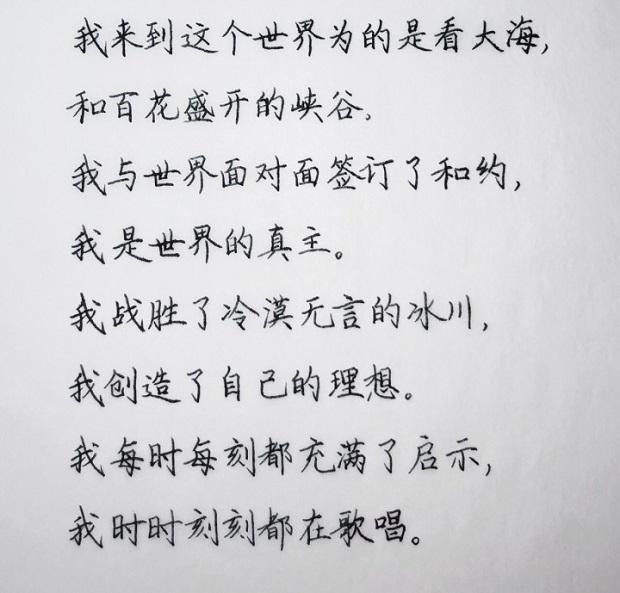 我来到这个世界为的是看大海，
和百花盛开的峡谷，
我与世界面对面签订了和约，
我是世界的真主。
我战胜了冷漠无言的冰川，
我创造了自己的理想。
我每时每刻都充满了启示，
我时时刻刻都在歌唱。